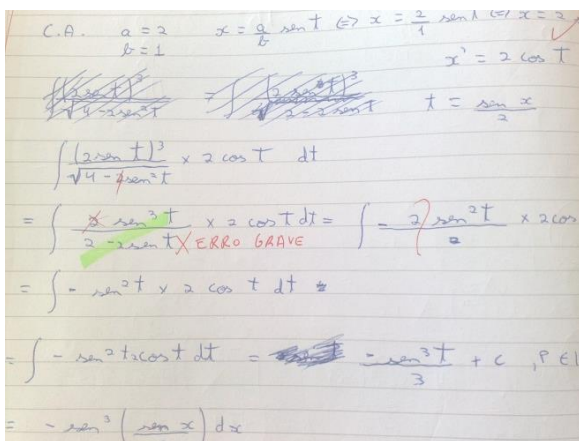 C.A. a = 2 x = a/b sen t <=> x = 2/1 sen t <=> x = 2
b = 1
x' = 2 cos t
t = sen x / 2
∫ (2 sen t)³ / √4 - 4 sen² t × 2 cos t dt
= ∫ 2 sen³ t / 2 - 2 sen t × 2 cos t dt = ∫ - 2 sen² t / 2 × 2 cos
X ERRO GRAVE
= ∫ - sen² t × 2 cos t dt
= ∫ - sen² t 2 cos t dt = - sen³ t / 3 + c , P ∈
= - sen³ ( sen x ) dx